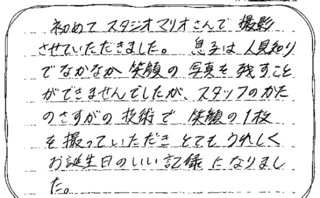 初めてスタジオマリオさんで撮影
させていただきました。息子は人見知り
でなかなか笑顔の写真を残すこと
ができませんでしたが、スタッフのかた
のさすがの技術で笑顔の1枚
を撮っていただきとてもうれしく
お誕生日のいい記録になりまし
た。